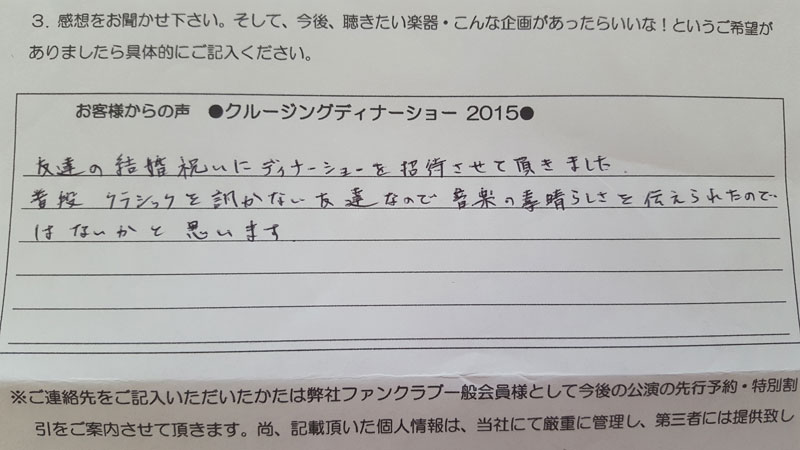 3．感想をお聞かせ下さい。そして、今後、聴きたい楽器・こんな企画があったらいいな！というご希望が
ありましたら具体的にご記入ください。
お客様からの声　●クルージングディナーショー 2015●
友達の結婚祝いにディナーショーを招待させて頂きました.
普段 クラシックを訊かない友達なので 音楽の素晴らしさを伝えられたので
はないかと思います
※ご連絡先をご記入いただいたかたは弊社ファンクラブ一般会員様として今後の公演の先行予約・特別割
引をご案内させて頂きます。尚、記載頂いた個人情報は、当社にて厳重に管理し、第三者には提供致し